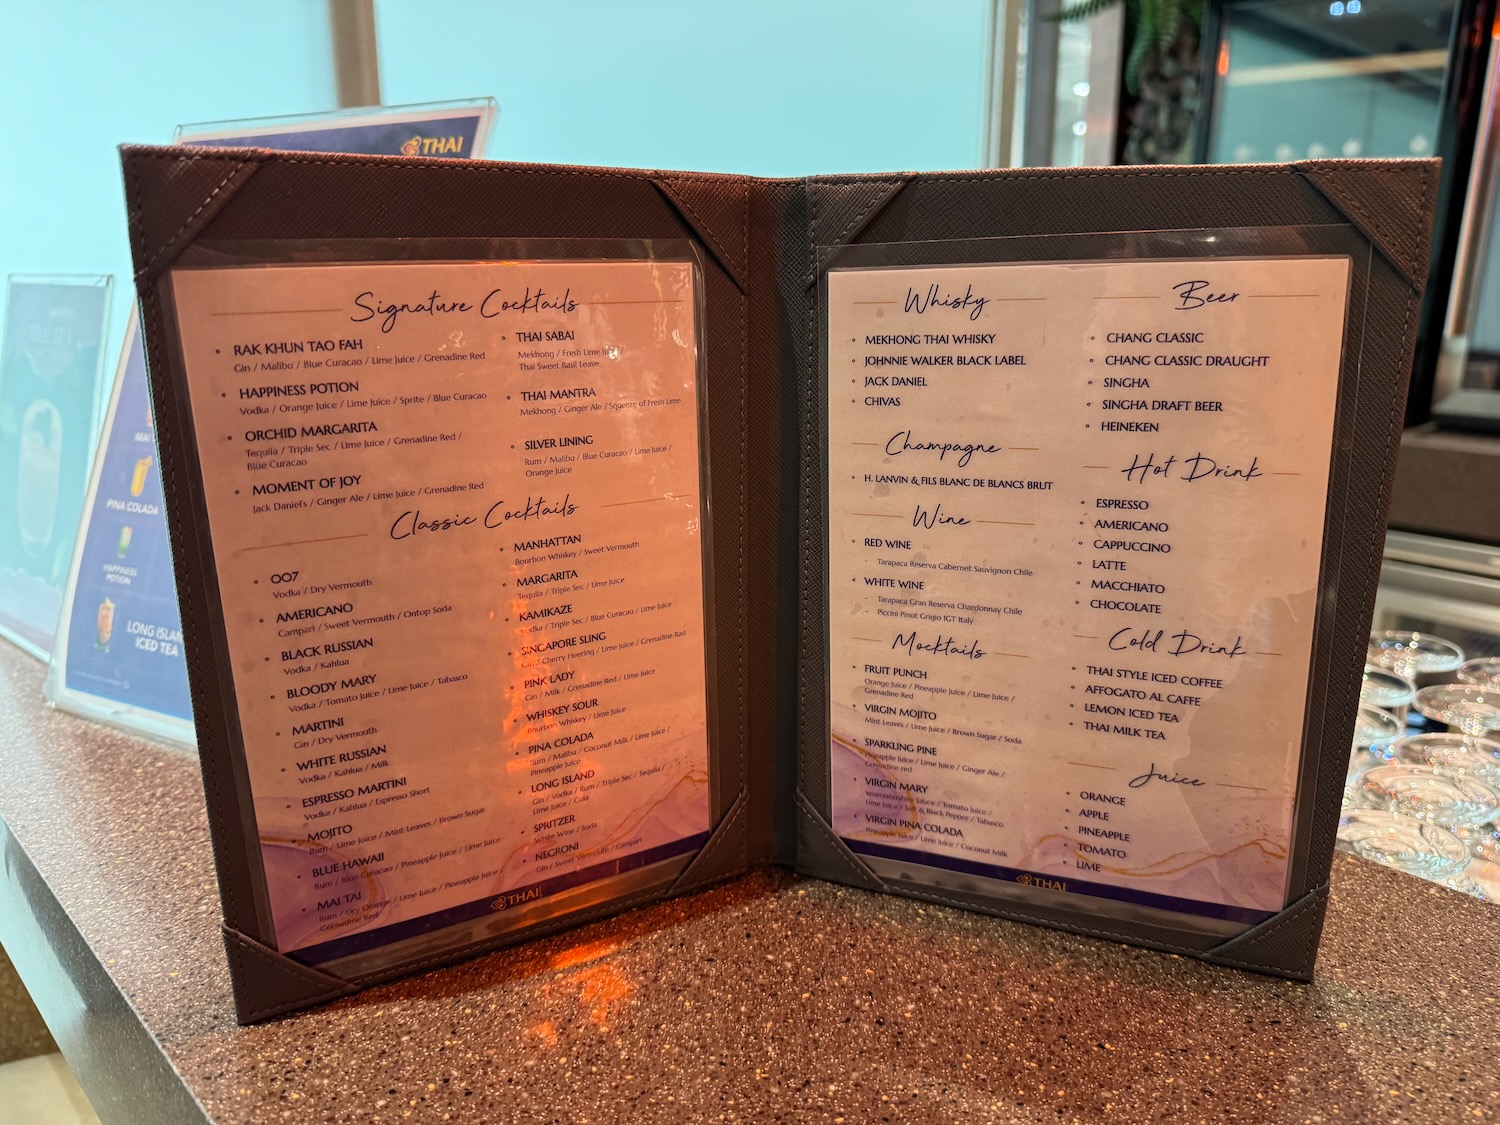 THAI
MAI
PINA COLADA
HAPPINESS
POTION
LONG ISLAN
ICED TEA
Signature Cocktails
RAK KHUN TAO FAH
Gin / Malibu / Blue Curacao / Lime Juice / Grenadine Red
HAPPINESS POTION
Vodka / Orange Juice / Lime Juice / Sprite / Blue Curacao
ORCHID MARGARITA
Tequila / Triple Sec / Lime Juice / Grenadine Red /
Blue Curacao
MOMENT OF JOY
Jack Daniel's / Ginger Ale / Lime Juice / Grenadine Red
THAI SABAI
Mekhong / Fresh Lime Juice /
Thai Sweet Basil Leave
THAI MANTRA
Mekhong / Ginger Ale / Squeeze of Fresh Lime
SILVER LINING
Rum / Malibu / Blue Curacao / Lime Juice /
Orange Juice
Classic Cocktails
OO7
Vodka / Dry Vermouth
AMERICANO
Campari / Sweet Vermouth / Ontop Soda
BLACK RUSSIAN
Vodka / Kahlua
BLOODY MARY
Vodka / Tomato Juice / Lime Juice / Tabasco
MARTINI
Gin / Dry Vermouth
WHITE RUSSIAN
Vodka / Kahlua / Milk
ESPRESSO MARTINI
Vodka / Kahlua / Espresso Short
MOJITO
Rum / Lime Juice / Mint Leaves / Brown Sugar
BLUE HAWAII
Rum / Blue Curacao / Pineapple Juice / Lime Juice
MAI TAI
Rum / Dry Orange / Lime Juice / Pineapple Juice /
Grenadine Red
MANHATTAN
Bourbon Whiskey / Sweet Vermouth
MARGARITA
Tequila / Triple Sec / Lime Juice
KAMIKAZE
Vodka / Triple Sec / Blue Curacao / Lime Juice
SINGAPORE SLING
Gin / Cherry Heering / Lime Juice / Grenadine Red
PINK LADY
Gin / Milk / Grenadine Red / Lime Juice
WHISKEY SOUR
Bourbon Whiskey / Lime Juice
PINA COLADA
Rum / Malibu / Coconut Milk / Lime Juice /
Pineapple Juice
LONG ISLAND
Gin / Vodka / Rum / Triple Sec / Tequila /
Lime Juice / Cola
SPRITZER
White Wine / Soda
NEGRONI
Gin / Sweet Vermouth / Campari
THAI
Whisky
MEKHONG THAI WHISKY
JOHNNIE WALKER BLACK LABEL
JACK DANIEL
CHIVAS
Champagne
H. LANVIN & FILS BLANC DE BLANCS BRUT
Wine
RED WINE
- Tarapaca Reserva Cabernet Sauvignon Chile
WHITE WINE
- Tarapaca Gran Reserva Chardonnay Chile
- Piccini Pinot Grigio IGT Italy
Mocktails
FRUIT PUNCH
Orange Juice / Pineapple Juice / Lime Juice /
Grenadine Red
VIRGIN MOJITO
Mint Leaves / Lime Juice / Brown Sugar / Soda
SPARKLING PINE
Pineapple Juice / Lime Juice / Ginger Ale /
Grenadine red
VIRGIN MARY
Worcestershire Sauce / Tomato Juice /
Lime Juice / Salt & Black Pepper / Tabasco
VIRGIN PINA COLADA
Pineapple Juice / Lime Juice / Coconut Milk
Beer
CHANG CLASSIC
CHANG CLASSIC DRAUGHT
SINGHA
SINGHA DRAFT BEER
HEINEKEN
Hot Drink
ESPRESSO
AMERICANO
CAPPUCCINO
LATTE
MACCHIATO
CHOCOLATE
Cold Drink
THAI STYLE ICED COFFEE
AFFOGATO AL CAFFE
LEMON ICED TEA
THAI MILK TEA
Juice
ORANGE
APPLE
PINEAPPLE
TOMATO
LIME
THAI